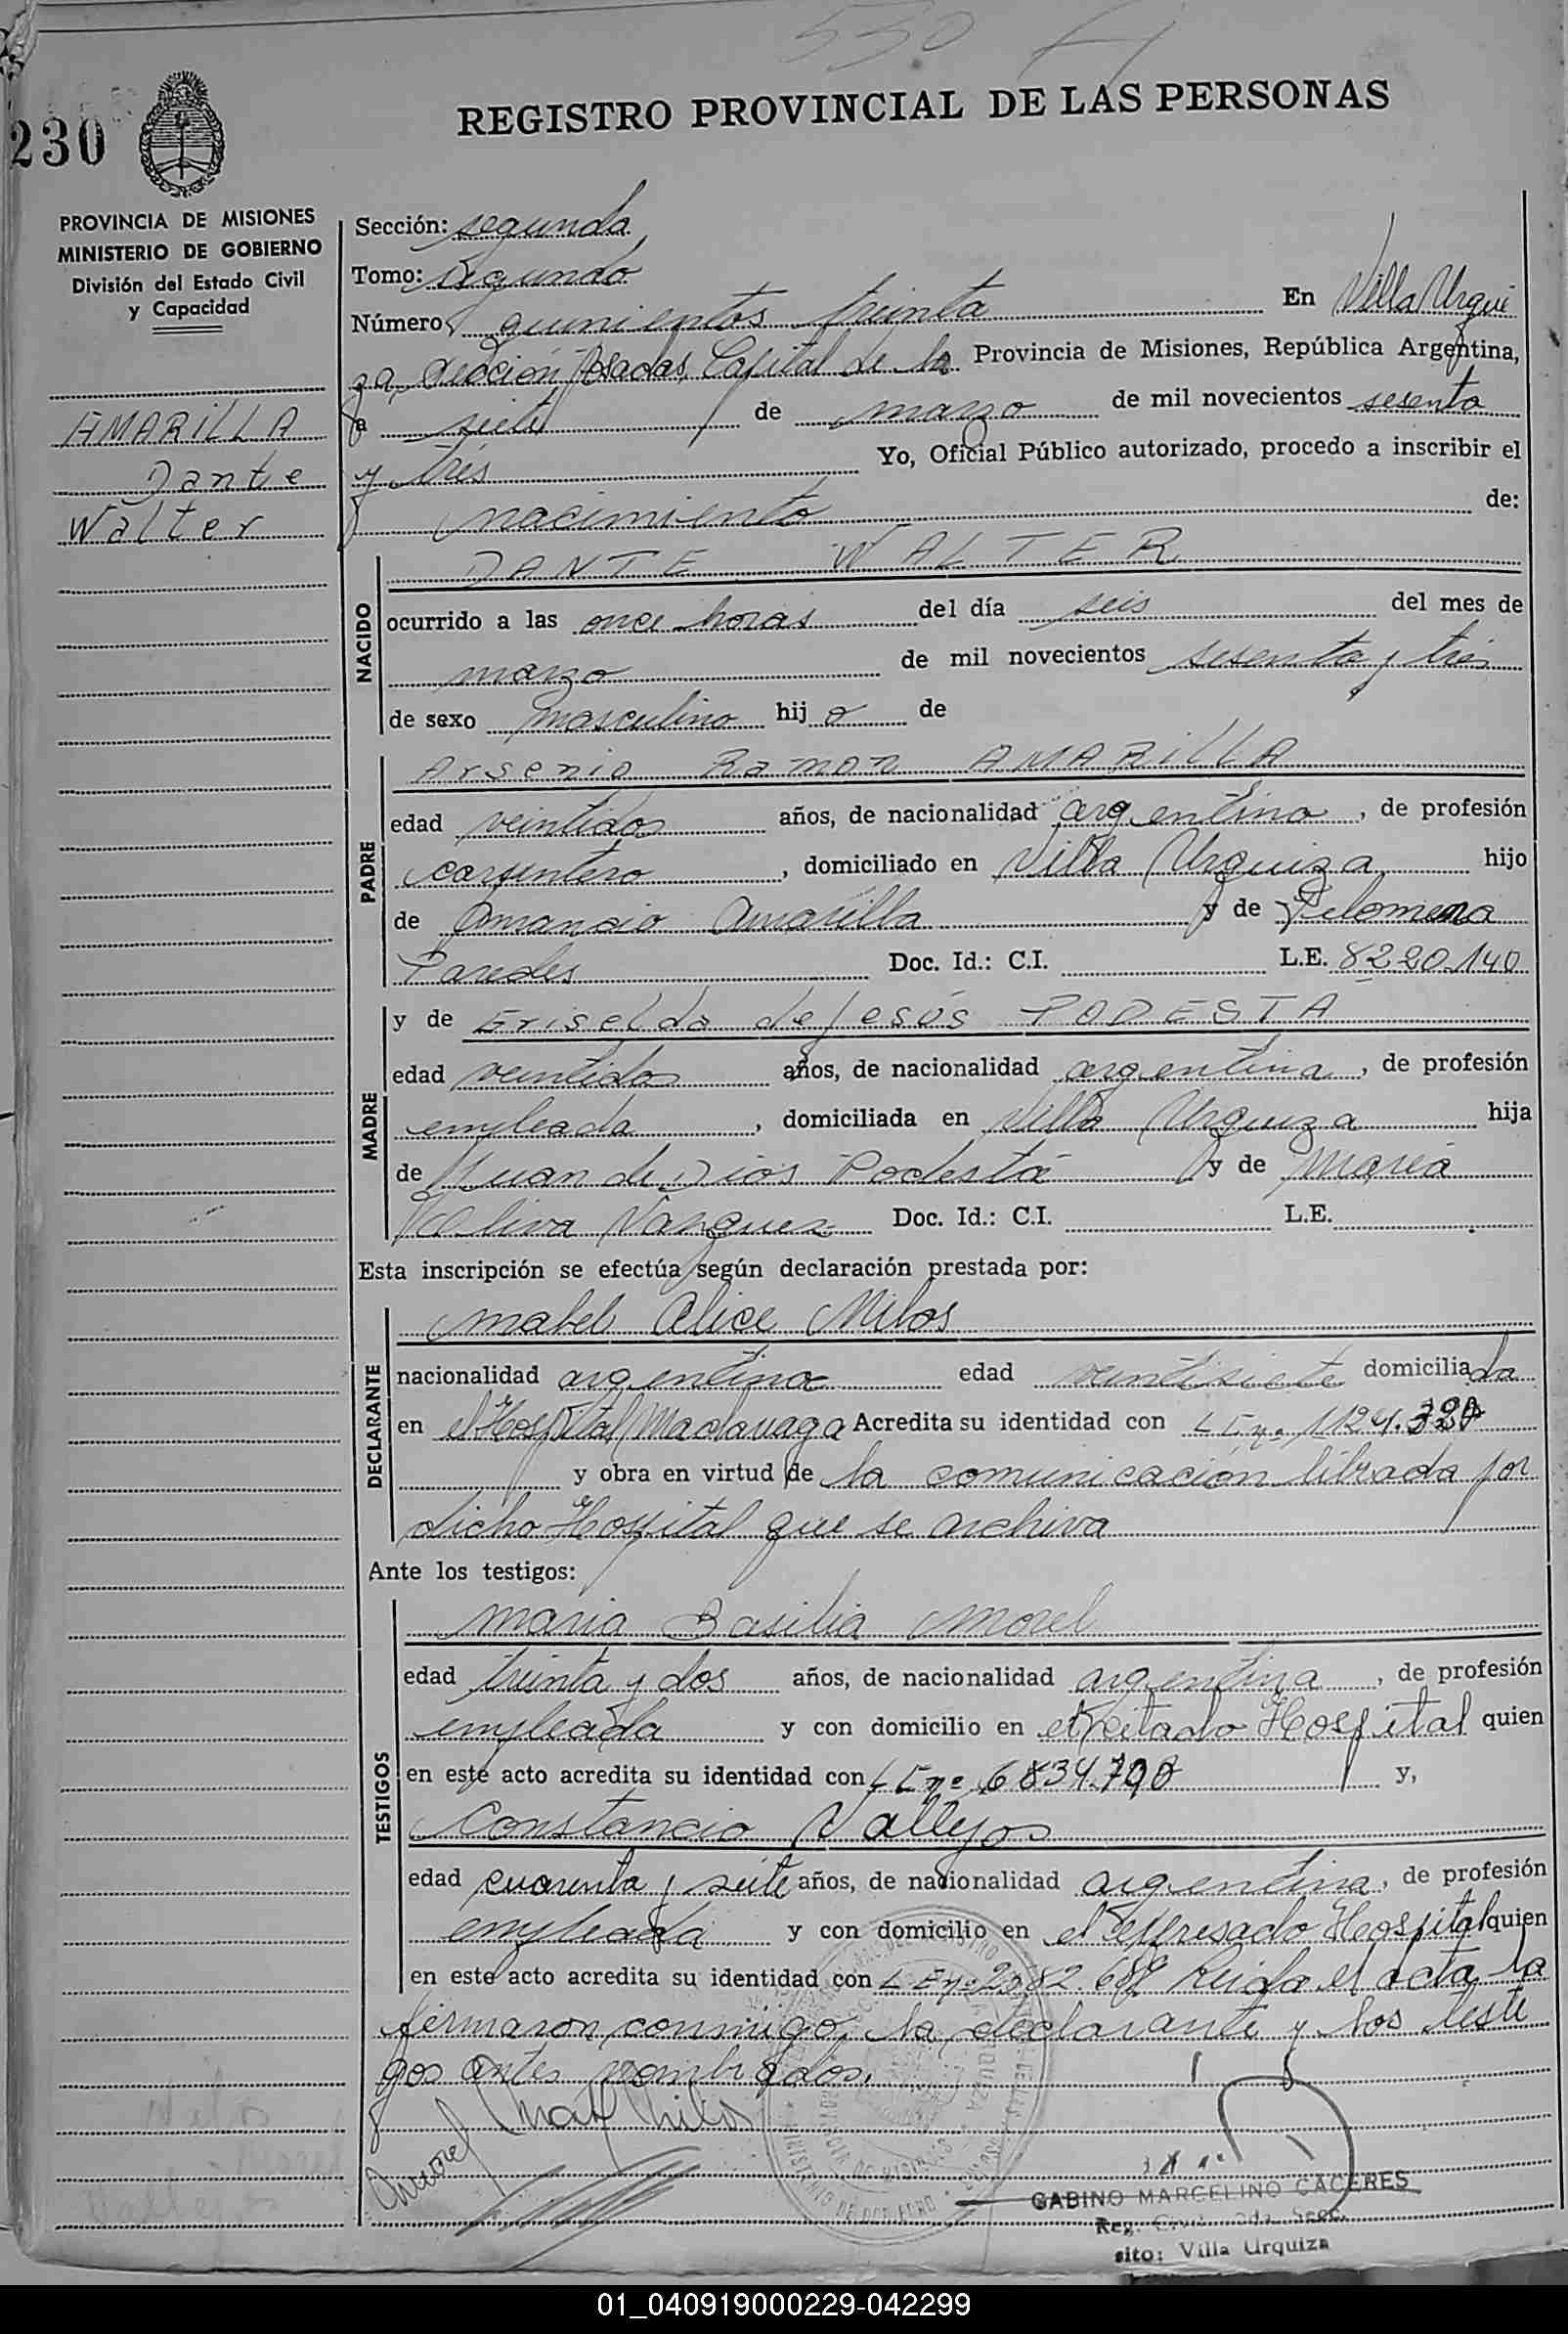 530
230
REGISTRO PROVINCIAL DE LAS PERSONAS
PROVINCIA DE MISIONES
MINISTERIO DE GOBIERNO
División del Estado Civil
y Capacidad
AMARILLA
Dante
Walter
Sección: segunda
Tomo: segundo
Número quinientos treinta En Villa Urqui
za, sección Posadas, Capital de la Provincia de Misiones, República Argentina,
a siete de marzo de mil novecientos sesenta
y tres Yo, Oficial Público autorizado, procedo a inscribir el
nacimiento de:
NACIDO
DANTE WALTER
ocurrido a las once horas del día seis del mes de
marzo de mil novecientos sesenta y tres
de sexo masculino hij o de
PADRE
Arsenio Ramon AMARILLA
edad veintidos años, de nacionalidad argentino, de profesión
carpintero, domiciliado en Villa Urquiza hijo
de Amancio Amarilla y de Filomena
Paredes Doc. Id.: C.I. L.E. 8220.140
MADRE
y de Griselda de Jesús PODESTA
edad veintidos años, de nacionalidad argentina, de profesión
empleada, domiciliada en Villa Urquiza hija
de Juan de Dios Podestá y de Maria
Vazquez Doc. Id.: C.I. L.E.
Esta inscripción se efectúa según declaración prestada por:
DECLARANTE
Mabel Alice Milos
nacionalidad argentina edad veintisiete domiciliada
en el Hospital Madariaga Acredita su identidad con L E nº 1124.320
y obra en virtud de la comunicacion librada por
dicho Hospital que se archiva
Ante los testigos:
TESTIGOS
Maria Basilia Morel
edad treinta y dos años, de nacionalidad argentina, de profesión
empleada y con domicilio en el citado Hospital quien
en este acto acredita su identidad con L E nº 6834.790 y,
Constancio Vallejos
edad cuarenta y siete años, de nacionalidad argentina, de profesión
empleada y con domicilio en el expresado Hospital quien
en este acto acredita su identidad con L E nº 2582.689 Leida el acta, la
firmaron conmigo, la declarante y los testi
gos antes nombrados.
Morel
GABINO MARCELINO CACERES
Reg. Secc.
sito: Villa Urquiza
01_040919000229-042299